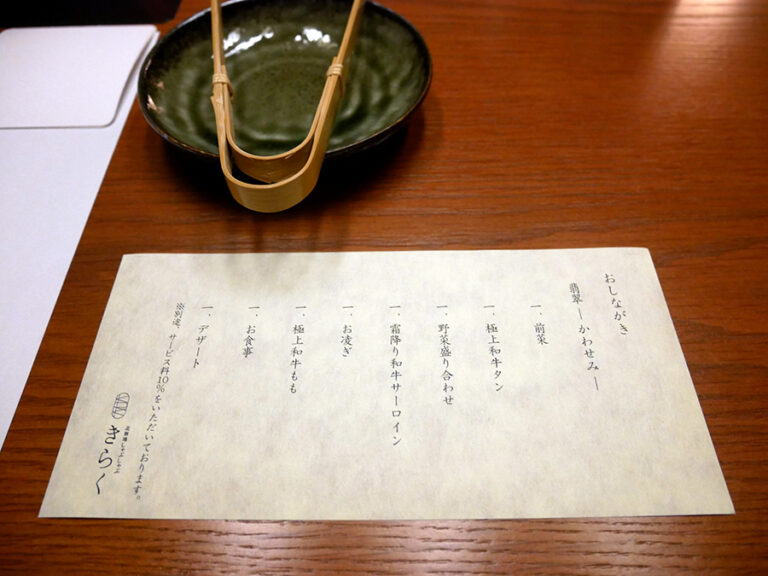 おしながき
翡翠 ―かわせみ―
一、前菜
一、極上和牛タン
一、野菜盛り合わせ
一、霜降り和牛サーロイン
一、お凌ぎ
一、極上和牛もも
一、お食事
一、デザート
※別途、サービス料10%をいただいております。
きらく